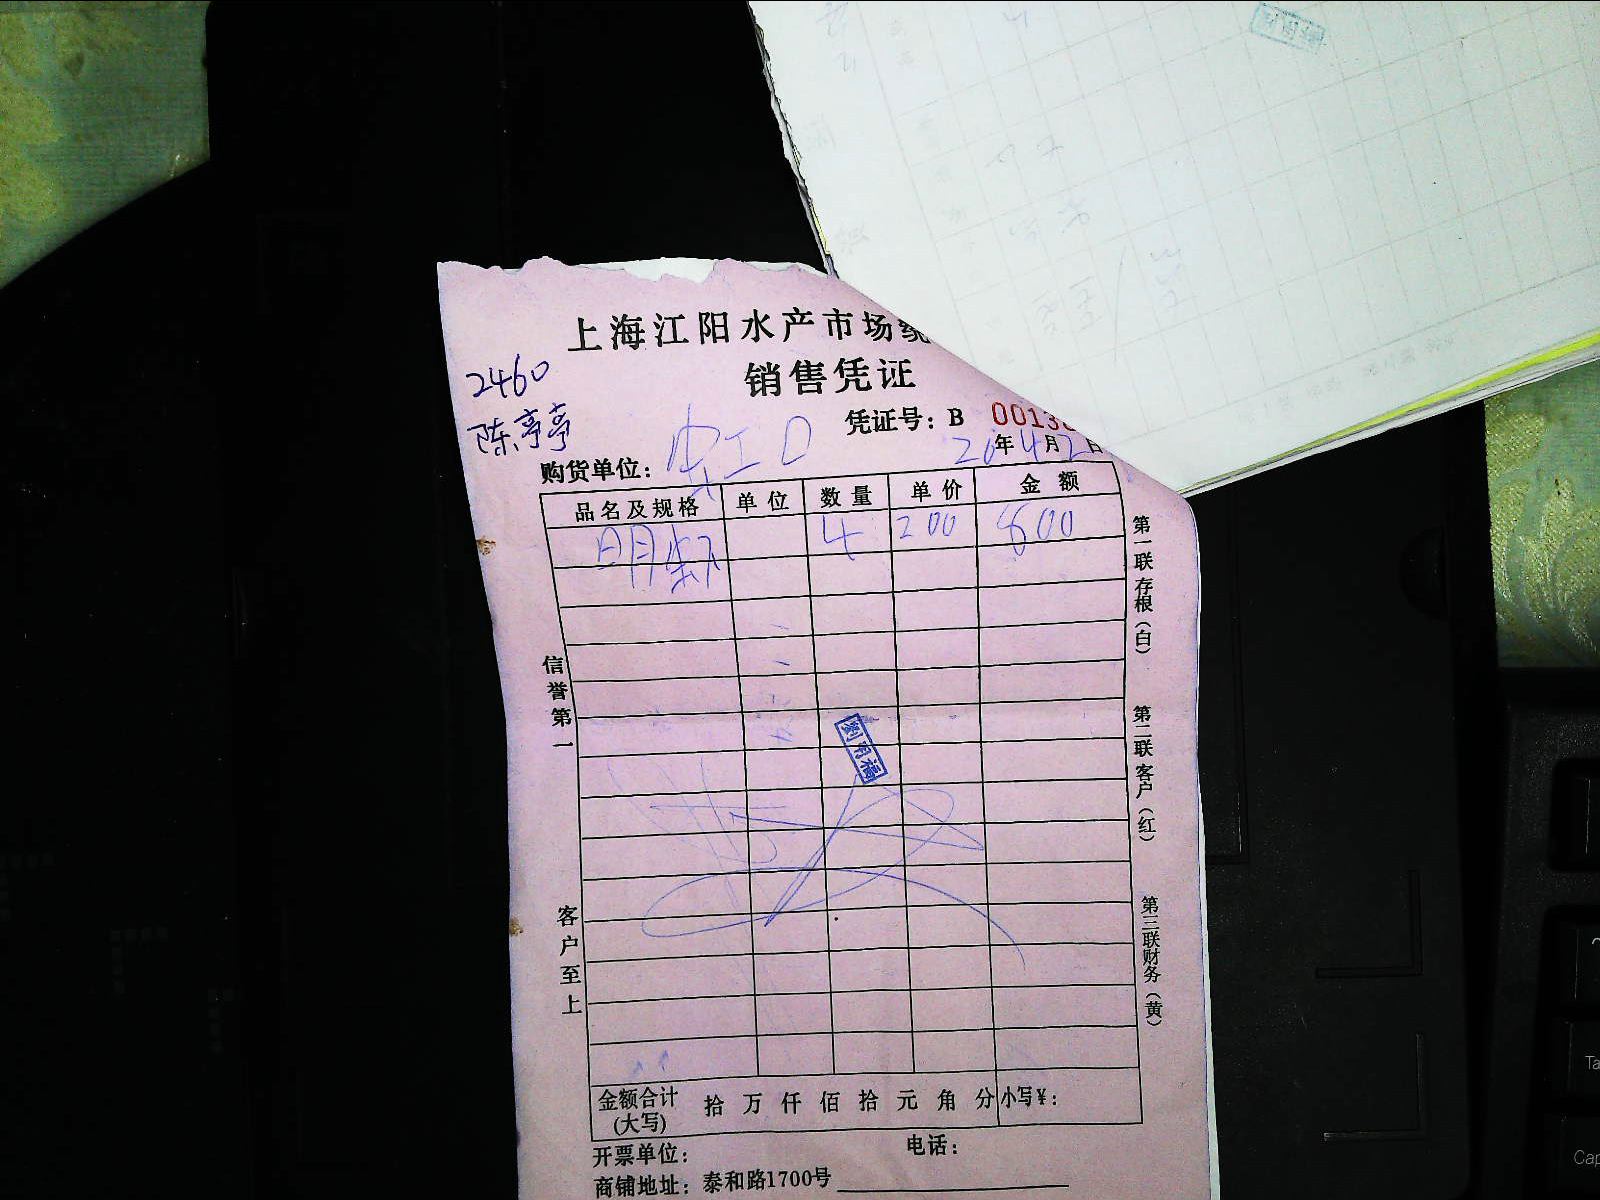 上海江阳水产市场统
销售凭证
2460
陈亭亭
凭证号：B 0013
20年4月2日
购货单位：虹口
品名及规格 单位 数量 单价 金额
明虾 4 200 800
第一联存根（白）
第二联客户（红）
第三联财务（黄）
信誉第一
客户至上
劉明福
金额合计(大写) 拾万仟佰拾元角分 小写￥：
开票单位： 电话：
商铺地址：泰和路1700号